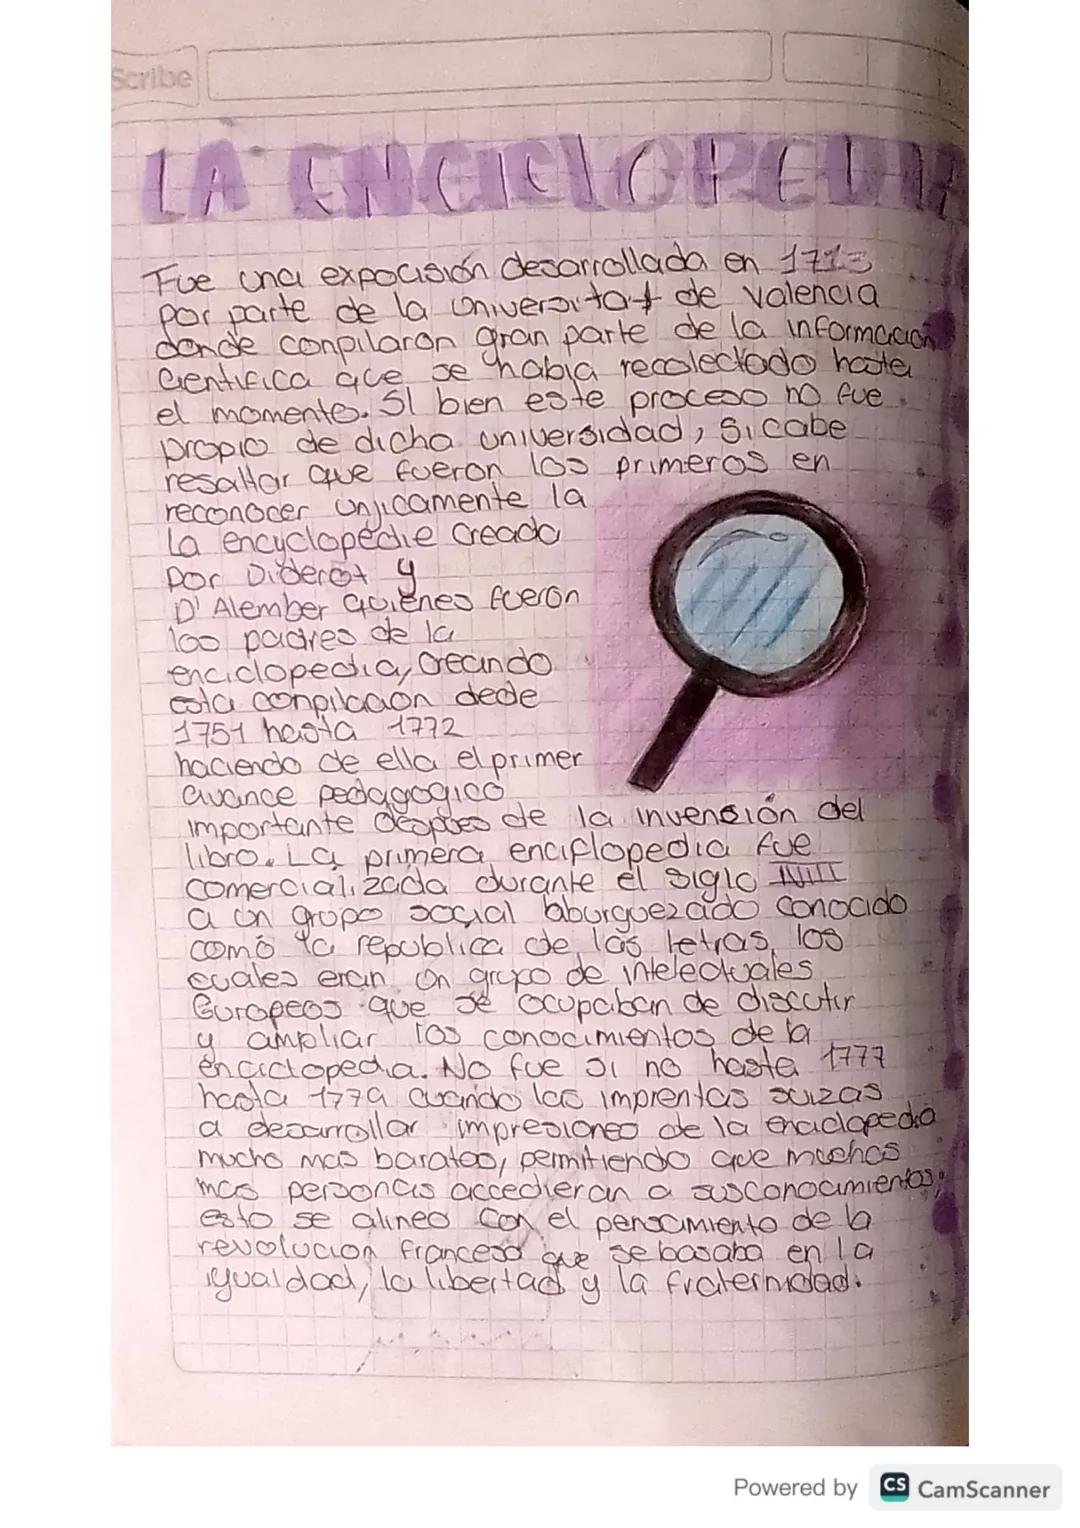 Scribe
LA ENCICLOPEDIA
Fue una exposisión desarrollada en 1713
por parte de la universitat de valencia
donde conpilaron gran parte de la información
Cientifica que se habia recolectado hasta
el momento. Si bien este proceso no fue
propio de dicha universidad, si cabe
resaltar que fueron los primeros en
reconocer unjicamente la
la encyclopédie creada
por Diderot y
D'Alember quienes fueron
los padres de la
enciclopedia, creando
esta conpilacion dede
1751 hasta 1772
haciendo de ella el primer
avance pedagogico
importante despues de la invensión del
libro. La primera enciflopedia fue
comercializada durante el siglo
a un grupo social aburguezado conocido
como la republica de las letras, los
cuales eran un grupo de intelectuales
Europeos que se ocupaban de discutir
y ampliar los conocimientos de la
enciclopedia. No fue si no hasta 1777
hasta 1779 cuando las imprentas suizas
a desarrollar impresiones de la enciclopedia
mucho mas baratas, permitiendo que muchas
mas personas accedieran a susconocimientos,
esto se alineo con el pensamiento de la
revolucion francesa que se basaba en la
igualdad, la libertad y la fraternidad.
Powered by CS CamScanner